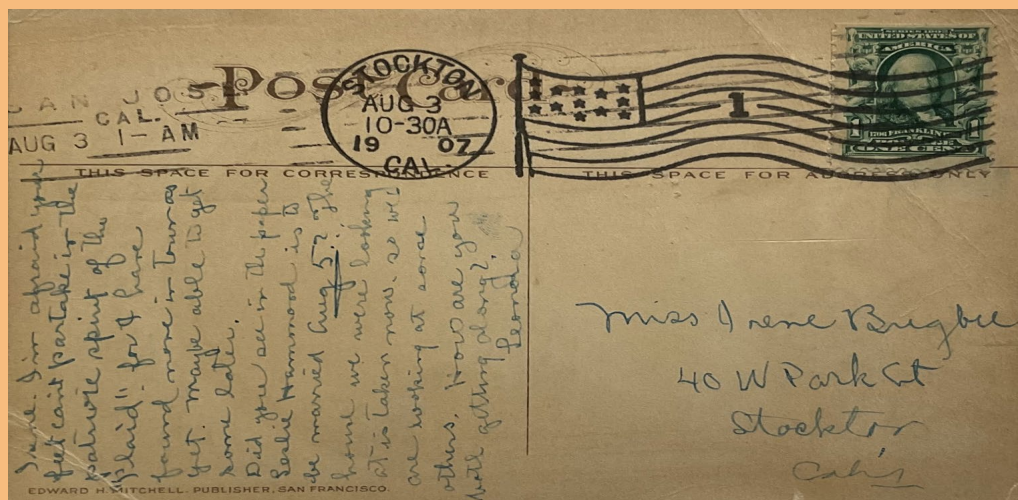 Post Card
SAN JOS
CAL.
AUG 3 1-AM
STOCKTON
AUG 3
10-30A
19 07
CAL.
1
SERIES 1902
UNITED STATES OF
AMERICA
FRANKLIN
ONE CENT
THIS SPACE FOR CORRESPONDENCE
THIS SPACE FOR ADDRESS ONLY
I'm afraid your
feet can't partake in the
patriotic spirit of the
"plaid" for I have
found none in town as
yet. Maybe able to get
some later.
Did you see in the paper
Leslie Hammond is to
be married Aug 5? The
home we were looking
at is taken now. so we
are looking at some
others. How are you
both getting along?
Leonda
Miss Irene Bugbee
40 W Park St
Stockton
EDWARD H. MITCHELL. PUBLISHER, SAN FRANCISCO.